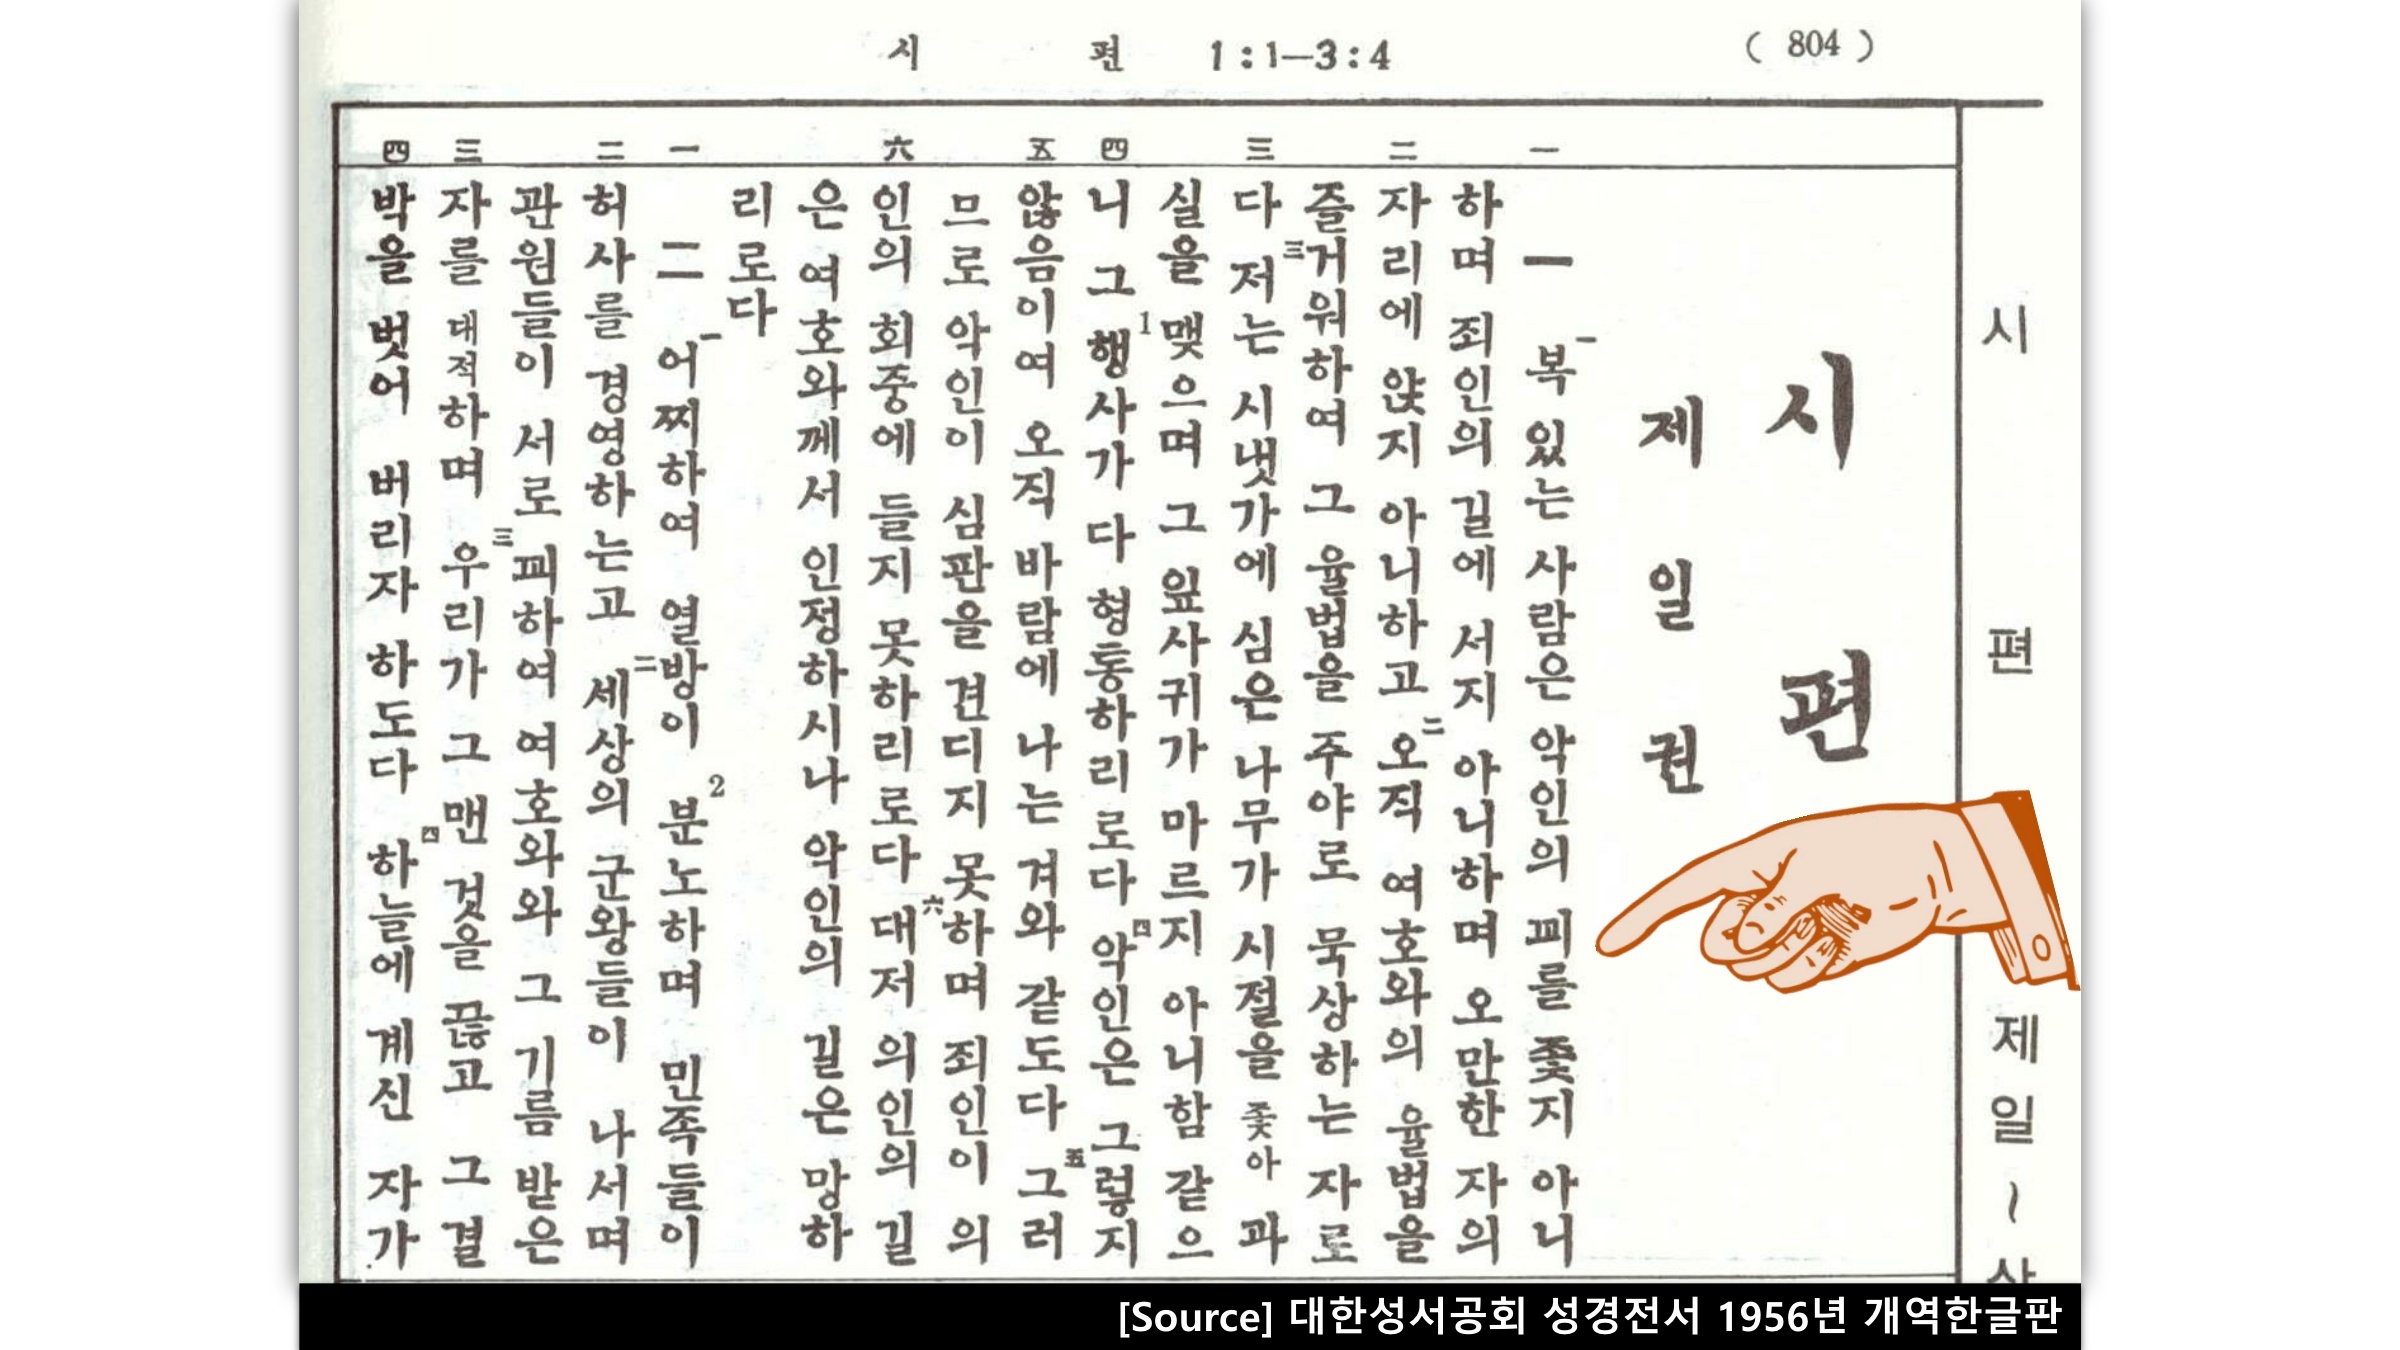 시 편 1:1—3:4 ( 804 )
시 편 제일~
一 二 三 四 五 六 一 二 三 四
시편
제일권
一 一복 있는 사람은 악인의 꾀를 좇지 아니
하며 죄인의 길에 서지 아니하며 오만한 자의
자리에 앉지 아니하고 二오직 여호와의 율법을
즐거워하여 그 율법을 주야로 묵상하는 자로
다 三저는 시냇가에 심은 나무가 시절을 좇아 과
실을 맺으며 그 잎사귀가 마르지 아니함 같으
니 그 1행사가 다 형통하리로다 四악인은 그렇지
않음이여 오직 바람에 나는 겨와 같도다 五그러
므로 악인이 심판을 견디지 못하며 죄인이 의
인의 회중에 들지 못하리로다 六대저 의인의 길
은 여호와께서 인정하시나 악인의 길은 망하
리로다
二 一어찌하여 열방이 2분노하며 민족들이
허사를 경영하는고 二세상의 군왕들이 나서며
관원들이 서로 꾀하여 여호와와 그 기름 받은
자를 대적하며 三우리가 그 맨 것을 끊고 그 결
박을 벗어 버리자 하도다 四하늘에 계신 자가
[Source] 대한성서공회 성경전서 1956년 개역한글판